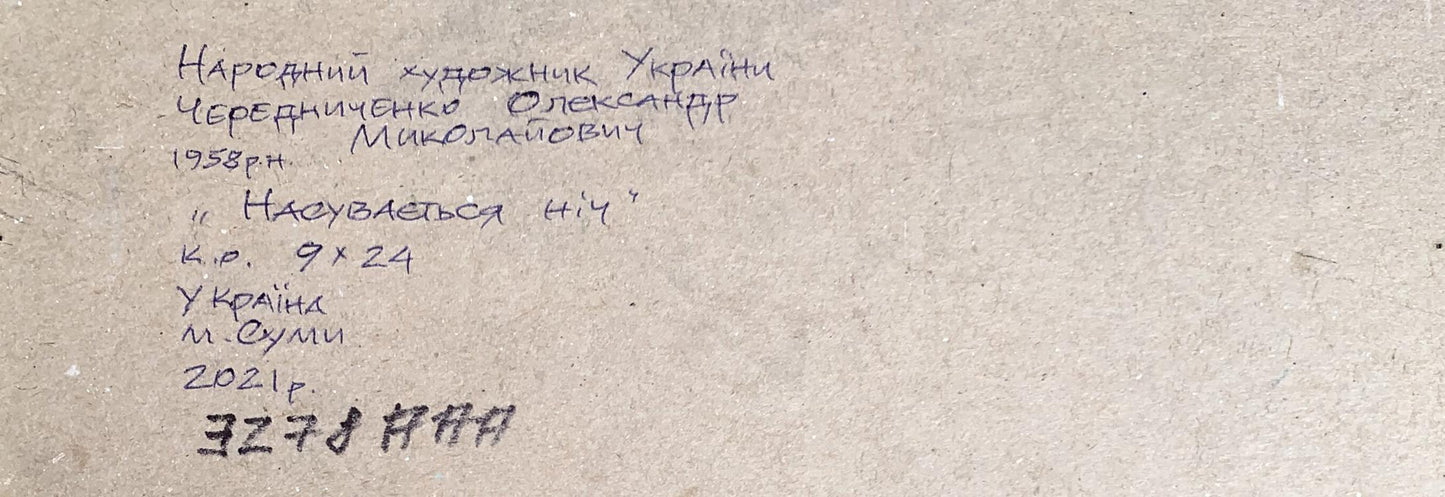 Народний художник України
Чередниченко Олександр
Миколайович
1958р.н.
„ Насувається ніч "
к.о. 9х24
Україна
м.Суми
2021р.
3278 AAA